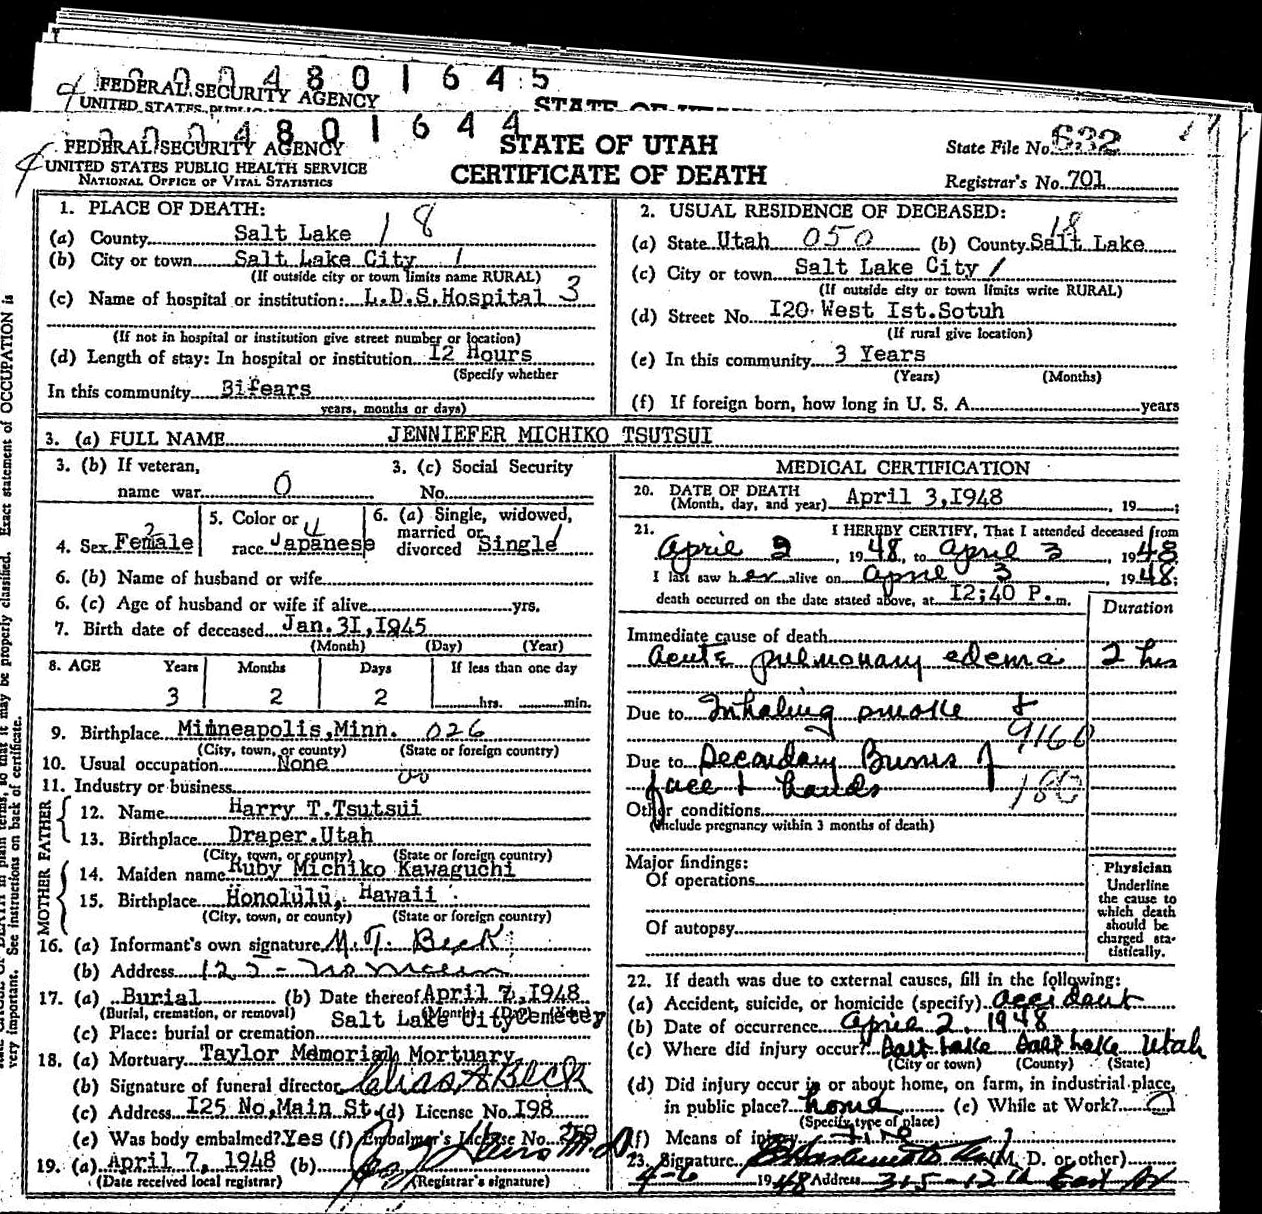 0 0 0 4 8 0 1 6 4 5
FEDERAL SECURITY AGENCY
UNITED STATES PUBLIC
STATE OF UTAH
0 0 0 4 8 0 1 6 4 4
FEDERAL SECURITY AGENCY
UNITED STATES PUBLIC HEALTH SERVICE
NATIONAL OFFICE OF VITAL STATISTICS
STATE OF UTAH
CERTIFICATE OF DEATH
State File No. 632
Registrar's No. 701
1. PLACE OF DEATH:
(a) County Salt Lake 18
(b) City or town Salt Lake City 1
(If outside city or town limits name RURAL)
(c) Name of hospital or institution: L.D.S.Hospital 3
(If not in hospital or institution give street number or location)
(d) Length of stay: In hospital or institution I2 Hours
(Specify whether
In this community
years, months or days)
2. USUAL RESIDENCE OF DECEASED:
(a) State Utah 050 (b) County Salt Lake 18
(c) City or town Salt Lake City 1
(If outside city or town limits write RURAL)
(d) Street No. I20 West Ist.Sotuh
(If rural give location)
(e) In this community 3 Years
(Years) (Months)
(f) If foreign born, how long in U. S. A. years
3. (a) FULL NAME JENNIEFER MICHIKO TSUTSUI
3. (b) If veteran, name war 0
3. (c) Social Security No.
4. Sex Female 2
5. Color or race Japanese 4
6. (a) Single, widowed, married or divorced Single 1
6. (b) Name of husband or wife
6. (c) Age of husband or wife if alive yrs.
7. Birth date of deceased Jan.3I,I945
(Month) (Day) (Year)
8. AGE Years Months Days If less than one day
3 2 2 hrs. min.
9. Birthplace Minneapolis,Minn. 026
(City, town, or county) (State or foreign country)
10. Usual occupation None
11. Industry or business
MOTHER FATHER
12. Name Harry T.Tsutsui
13. Birthplace Draper.Utah
(City, town, or county) (State or foreign country)
14. Maiden name Ruby Michiko Kawaguchi
15. Birthplace Honolulu, Hawaii
(City, town, or county) (State or foreign country)
16. (a) Informant's own signature M. T. Beck
(b) Address 125 - No Main
17. (a) Burial (b) Date thereof April 7,I948
(Burial, cremation, or removal) (Month) (Day) (Year)
(c) Place: burial or cremation Salt Lake City Cemetery
18. (a) Mortuary Taylor Memorial Mortuary
(b) Signature of funeral director Elias A Beck
(c) Address I25 No,Main St. (d) License No. I98
(e) Was body embalmed? Yes (f) Embalmer's License No. 259
19. (a) April 7, 1948 (b) M.D.
(Date received local registrar) (Registrar's signature)
MEDICAL CERTIFICATION
20. DATE OF DEATH April 3,I948
(Month, day, and year) , 19 ;
21. I HEREBY CERTIFY, That I attended deceased from
April 2, 1948, to April 3, 1948
I last saw her alive on April 3, 1948;
death occurred on the date stated above, at I2;40 P.m.
Duration
Immediate cause of death
acute pulmonary edema 2 hrs
Due to Inhaling smoke +
9160
Due to Secondary Burns of
face + hands 180
Other conditions
(Include pregnancy within 3 months of death)
Major findings:
Of operations
Of autopsy
Physician
Underline
the cause to
which death
should be
charged sta-
tistically.
22. If death was due to external causes, fill in the following:
(a) Accident, suicide, or homicide (specify) accident
(b) Date of occurrence April 2. 1948
(c) Where did injury occur? Salt Lake Salt Lake Utah
(City or town) (County) (State)
(d) Did injury occur in or about home, on farm, in industrial place,
in public place? home (e) While at Work? 0
(Specify type of place)
(f) Means of injury Fire
23. Signature (M. D. or other)
4-6 1948 Address 315 - 12th East
Exact statement of OCCUPATION is
so that it may be properly classified.
very important. See instructions on back of certificate.